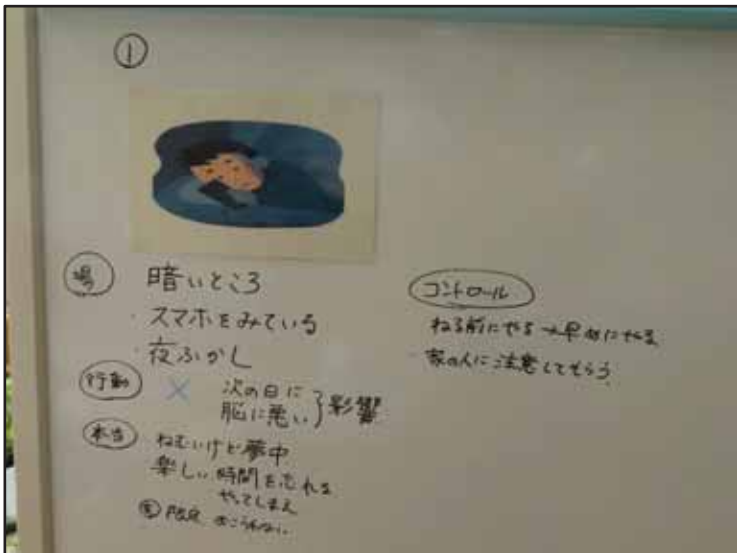 ①
場 暗いところ
・スマホをみている
・夜ふかし
行動 × 次の日に
脳に悪い } 影響
本当 ねむいけど夢中
楽しい 時間を忘れる
やってしまう
コントロール
ねる前にやる→早めにやる
・家の人に注意してもらう